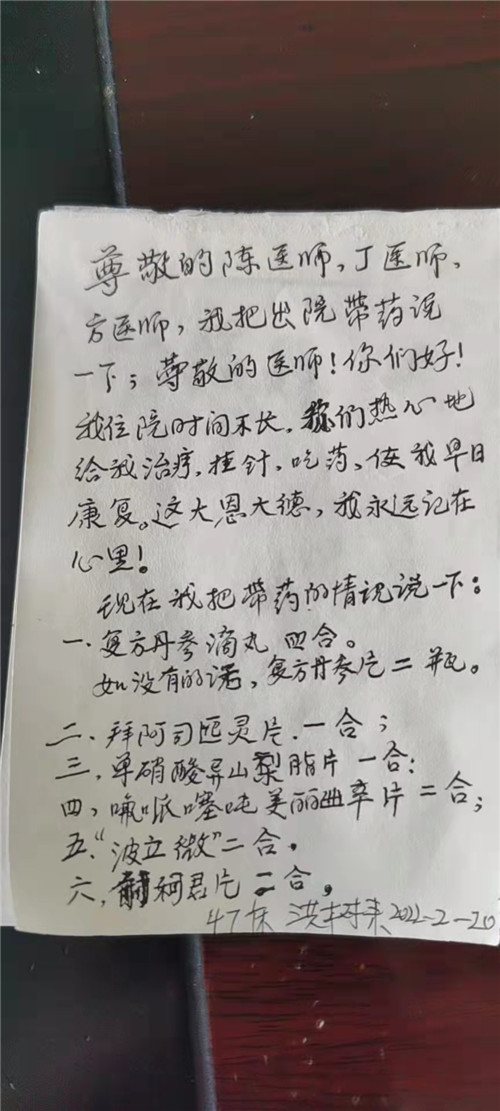 尊敬的陈医师,丁医师,
方医师,我把出院带药说
一下;尊敬的医师!你们好!
我住院时间不长,你们热心地
给我治疗,挂针,吃药,使我早日
康复。这大恩大德,我永远记在
心里!
现在我把带药的情况说一下:
一、复方丹参滴丸 四合。
如没有的话,复方丹参片二瓶。
二、拜阿司匹灵片.一合;
三、单硝酸异山梨脂片一合:
四、哌哌噻吨美丽曲卒片二合;
五、“波立微”二合.
六,柯君片二合,
47床 洪 来2022-2-20